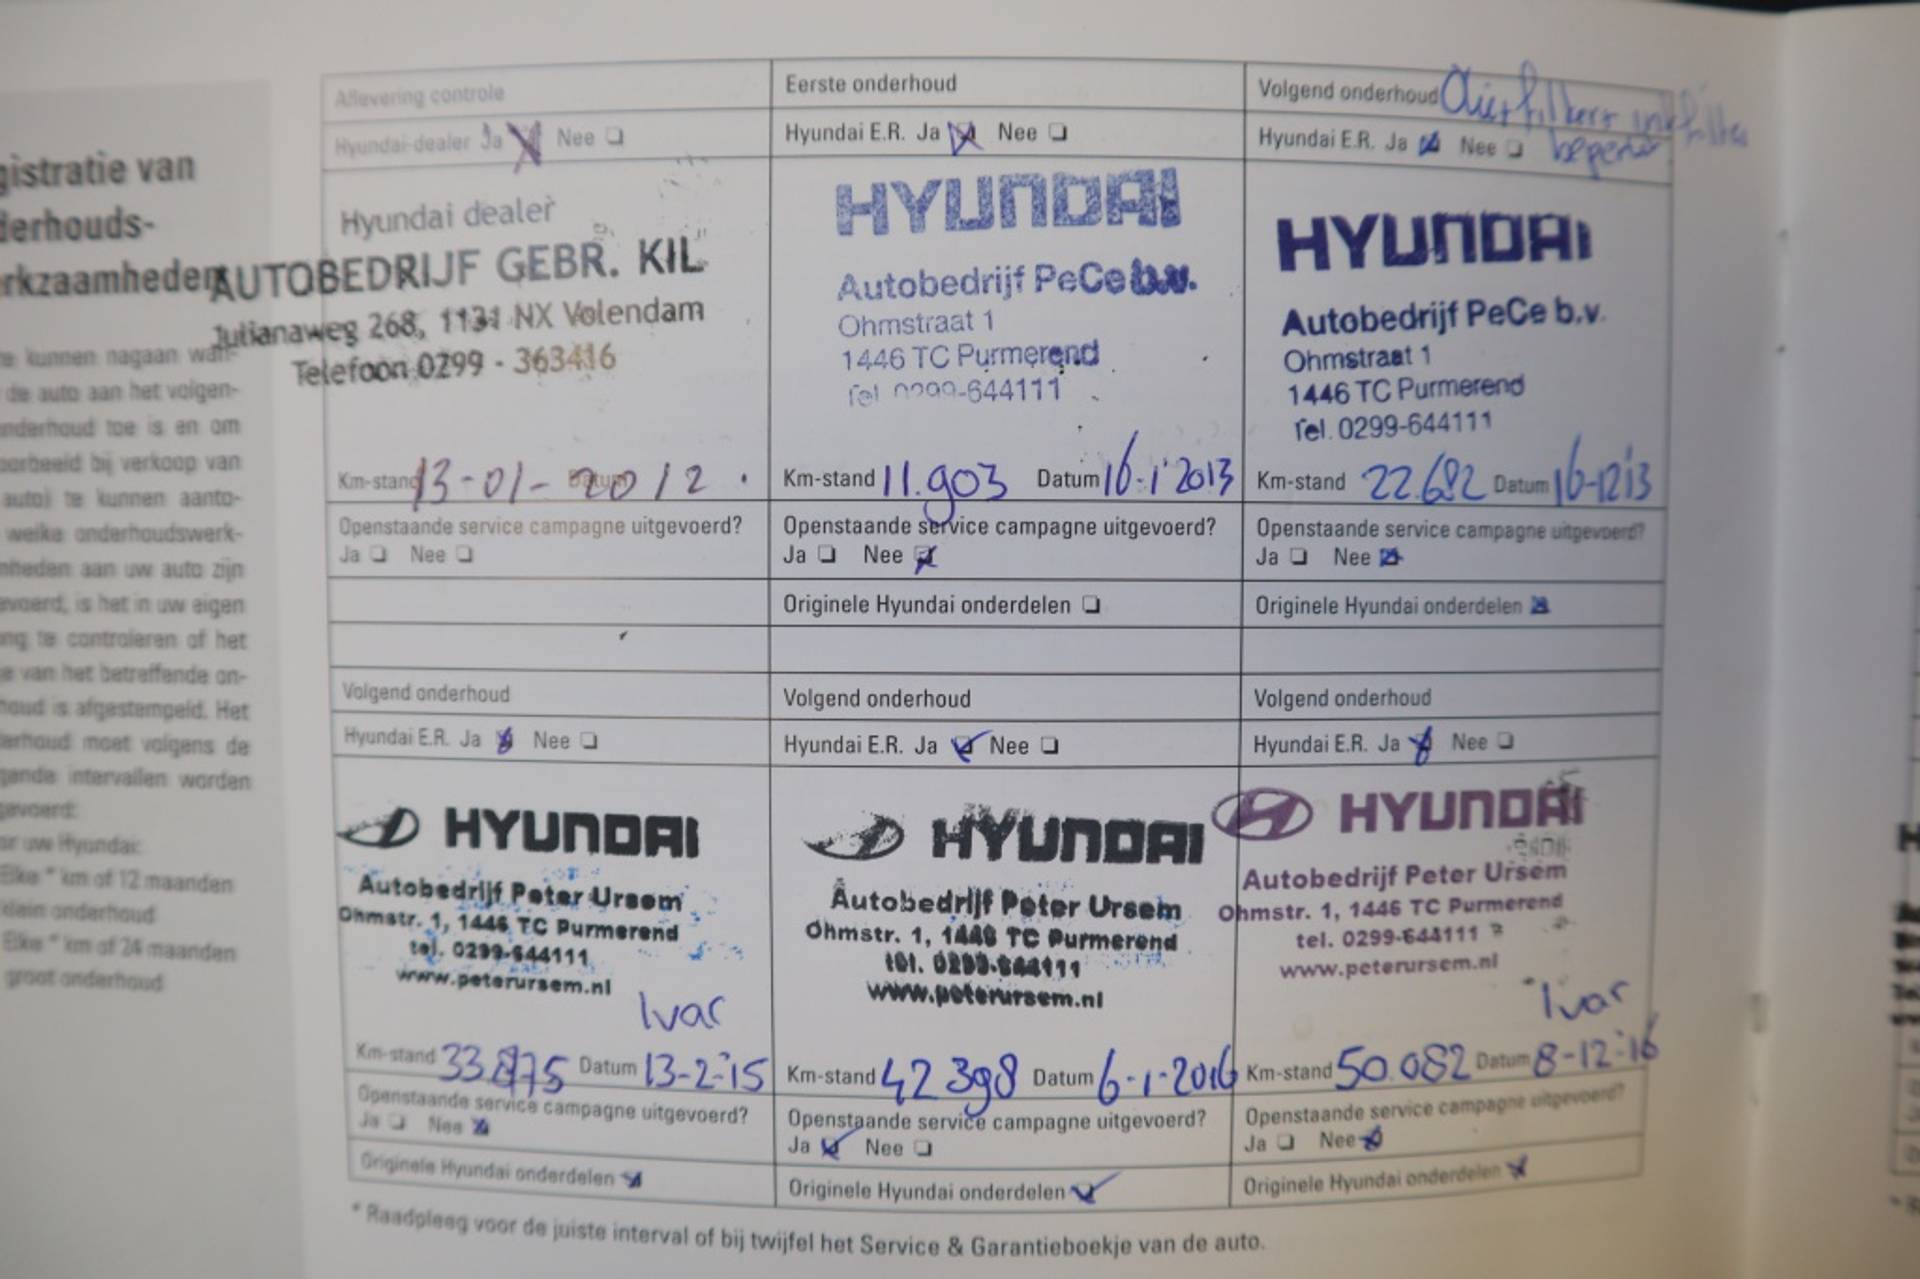 gistratie van
derhouds-
rkzaamheden
te kunnen nagaan wan-
de auto aan het volgen-
nderhoud toe is en om
oorbeeld bij verkoop van
auto) te kunnen aanto-
welke onderhoudswerk-
nheden aan uw auto zijn
evoerd, is het in uw eigen
ang te controleren of het
e van het betreffende on-
houd is afgestempeld. Het
derhoud moet volgens de
gende intervallen worden
gevoerd:
or uw Hyundai:
Elke * km of 12 maanden
klein onderhoud
Elke * km of 24 maanden
groot onderhoud
Aflevering controle
Hyundai-dealer Ja Nee
Hyundai dealer
AUTOBEDRIJF GEBR. KIL
Julianaweg 268, 1131 NX Volendam
Telefoon 0299 - 363416
Km-stand 13-01-2012 Datum
Openstaande service campagne uitgevoerd?
Ja Nee
Eerste onderhoud
Hyundai E.R. Ja Nee
HYUNDAI
Autobedrijf PeCe b.v.
Ohmstraat 1
1446 TC Purmerend
Tel. 0299-644111
Km-stand 11.903 Datum 16-1-2013
Openstaande service campagne uitgevoerd?
Ja Nee
Originele Hyundai onderdelen
Volgend onderhoud
Hyundai E.R. Ja Nee
HYUNDAI
Autobedrijf PeCe b.v.
Ohmstraat 1
1446 TC Purmerend
Tel. 0299-644111
Km-stand 22.682 Datum 16-12-13
Openstaande service campagne uitgevoerd?
Ja Nee
Originele Hyundai onderdelen
Volgend onderhoud
Hyundai E.R. Ja Nee
HYUNDAI
Autobedrijf Peter Ursem
Ohmstr. 1, 1446 TC Purmerend
tel. 0299-644111
www.peterursem.nl
Ivar
Km-stand 33.875 Datum 13-2-'15
Openstaande service campagne uitgevoerd?
Ja Nee
Originele Hyundai onderdelen
Volgend onderhoud
Hyundai E.R. Ja Nee
HYUNDAI
Autobedrijf Peter Ursem
Ohmstr. 1, 1446 TC Purmerend
tel. 0299-644111
www.peterursem.nl
Km-stand 42398 Datum 6-1-2016
Openstaande service campagne uitgevoerd?
Ja Nee
Originele Hyundai onderdelen
Volgend onderhoud
Hyundai E.R. Ja Nee
HYUNDAI
Autobedrijf Peter Ursem
Ohmstr. 1, 1446 TC Purmerend
tel. 0299-644111
www.peterursem.nl
Ivar
Km-stand 50.082 Datum 8-12-'16
Openstaande service campagne uitgevoerd?
Ja Nee
Originele Hyundai onderdelen
* Raadpleeg voor de juiste interval of bij twijfel het Service & Garantieboekje van de auto.